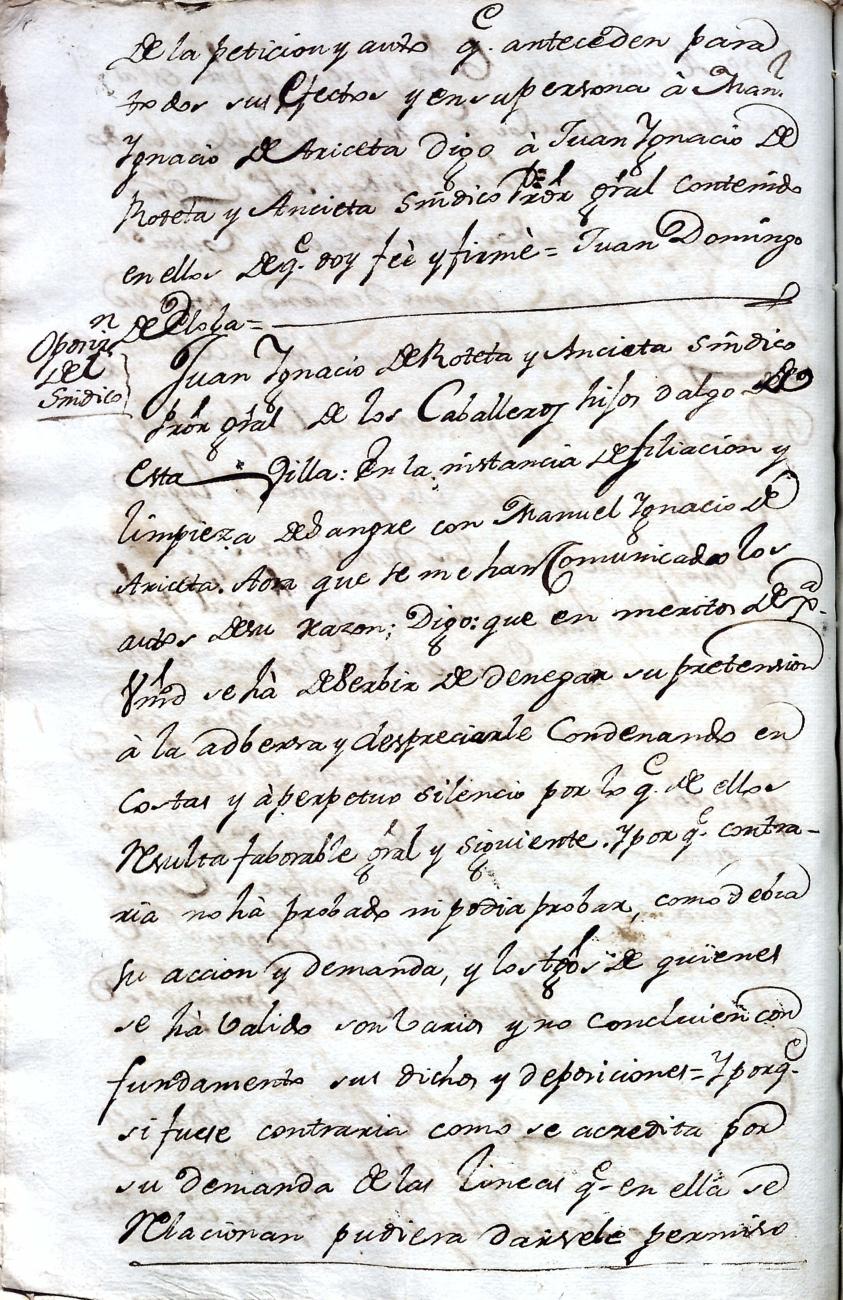 de la peticion y auto q.e anteceden para
todos sus efectos y en su persona à Man.l
Ygnacio de Ariceta digo à Juan Ygnacio de
Roteta y Ancieta Sindico Pror gral contenido
en ellos de q.e doy feè y firmè = Juan Domingo
de Olola =
Oposiz.n
del
Sindico
Juan Ygnacio de Roteta y Ancieta Sindico
Pror gral de los Caballeros hijos dalgo de
esta Villa: En la instancia de filiacion y
limpieza de Sangre con Manuel Ygnacio de
Ariceta. Aora que se me han Comunicado los
autos de su razon; Digo: que en meritos de
Vmd se hà de Serbir de denegar su pretension
à la adbersa y despreciarle Condenando en
Costas y à perpetuo silencio por lo q.e de ellos
Resulta faborable gral y siguiente. Y por q.e contra-
ria no hà probado ni podia probar, como debia
su accion y demanda, y los tgos de quienes
se hà Valido son Varios y no concluien con
fundamento sus dichos y deposiciones = Y porq.e
si fuese contraria como se acredita por
su demanda de las lineas q.e en ella se
Relacionan pudiera darsele permiso